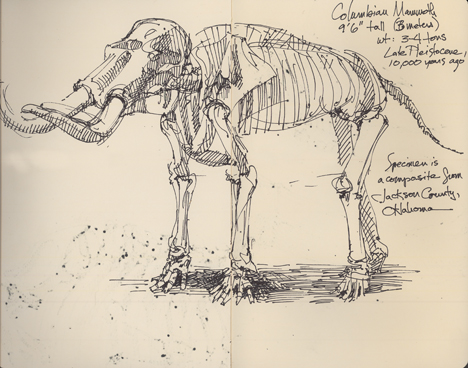 Columbian Mammoth
9'6" tall (3 meters)
wt: 3-4 tons
Late Pleistocene,
10,000 years ago
Specimen is
a composite from
Jackson County,
Oklahoma